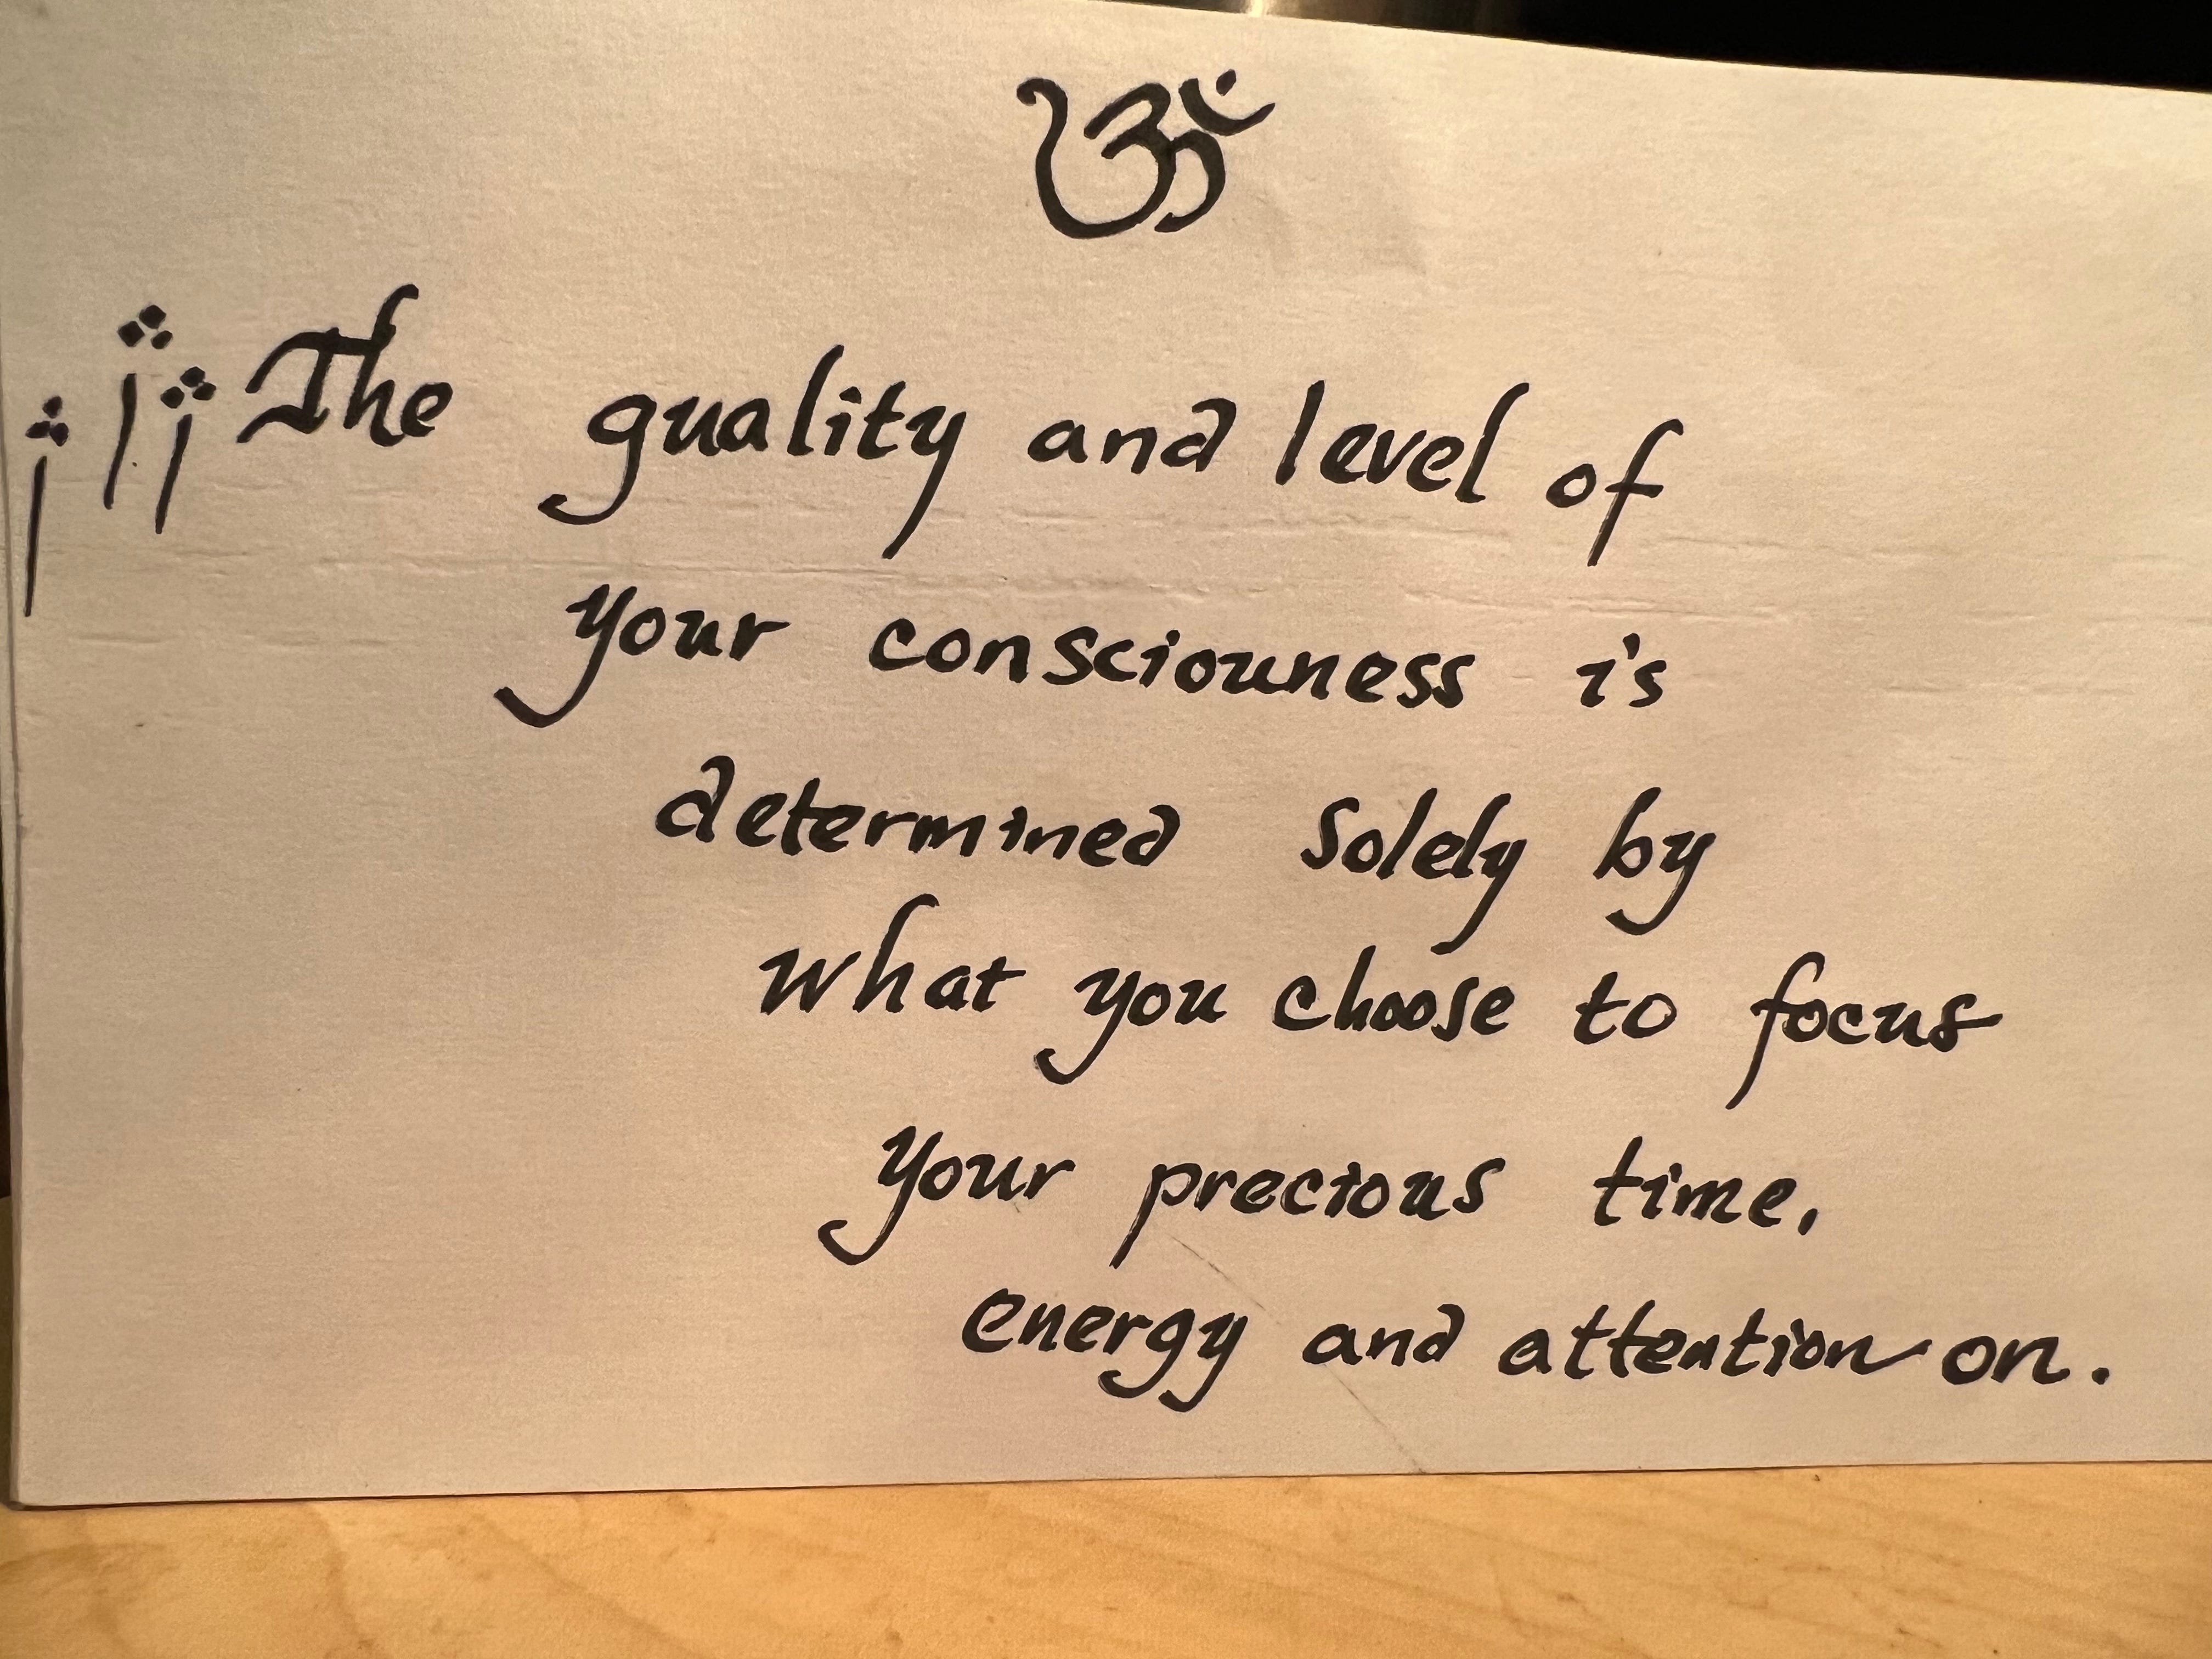 ॐ
The quality and level of
your consciouness is
determined solely by
what you choose to focus
your precious time,
energy and attention on.